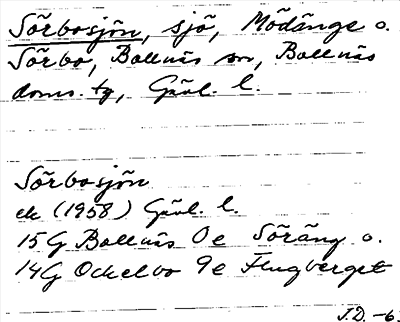 Sörbosjön, sjö, Mödänge o.
Sörbo, Bollnäs sn, Bollnäs
doms. tg, Gävl. l.
Sörbosjön
ek (1958) Gävl. l.
15G Bollnäs 0e Söräng o.
14G Ockelbo 9e Flugberget
J.D. -6